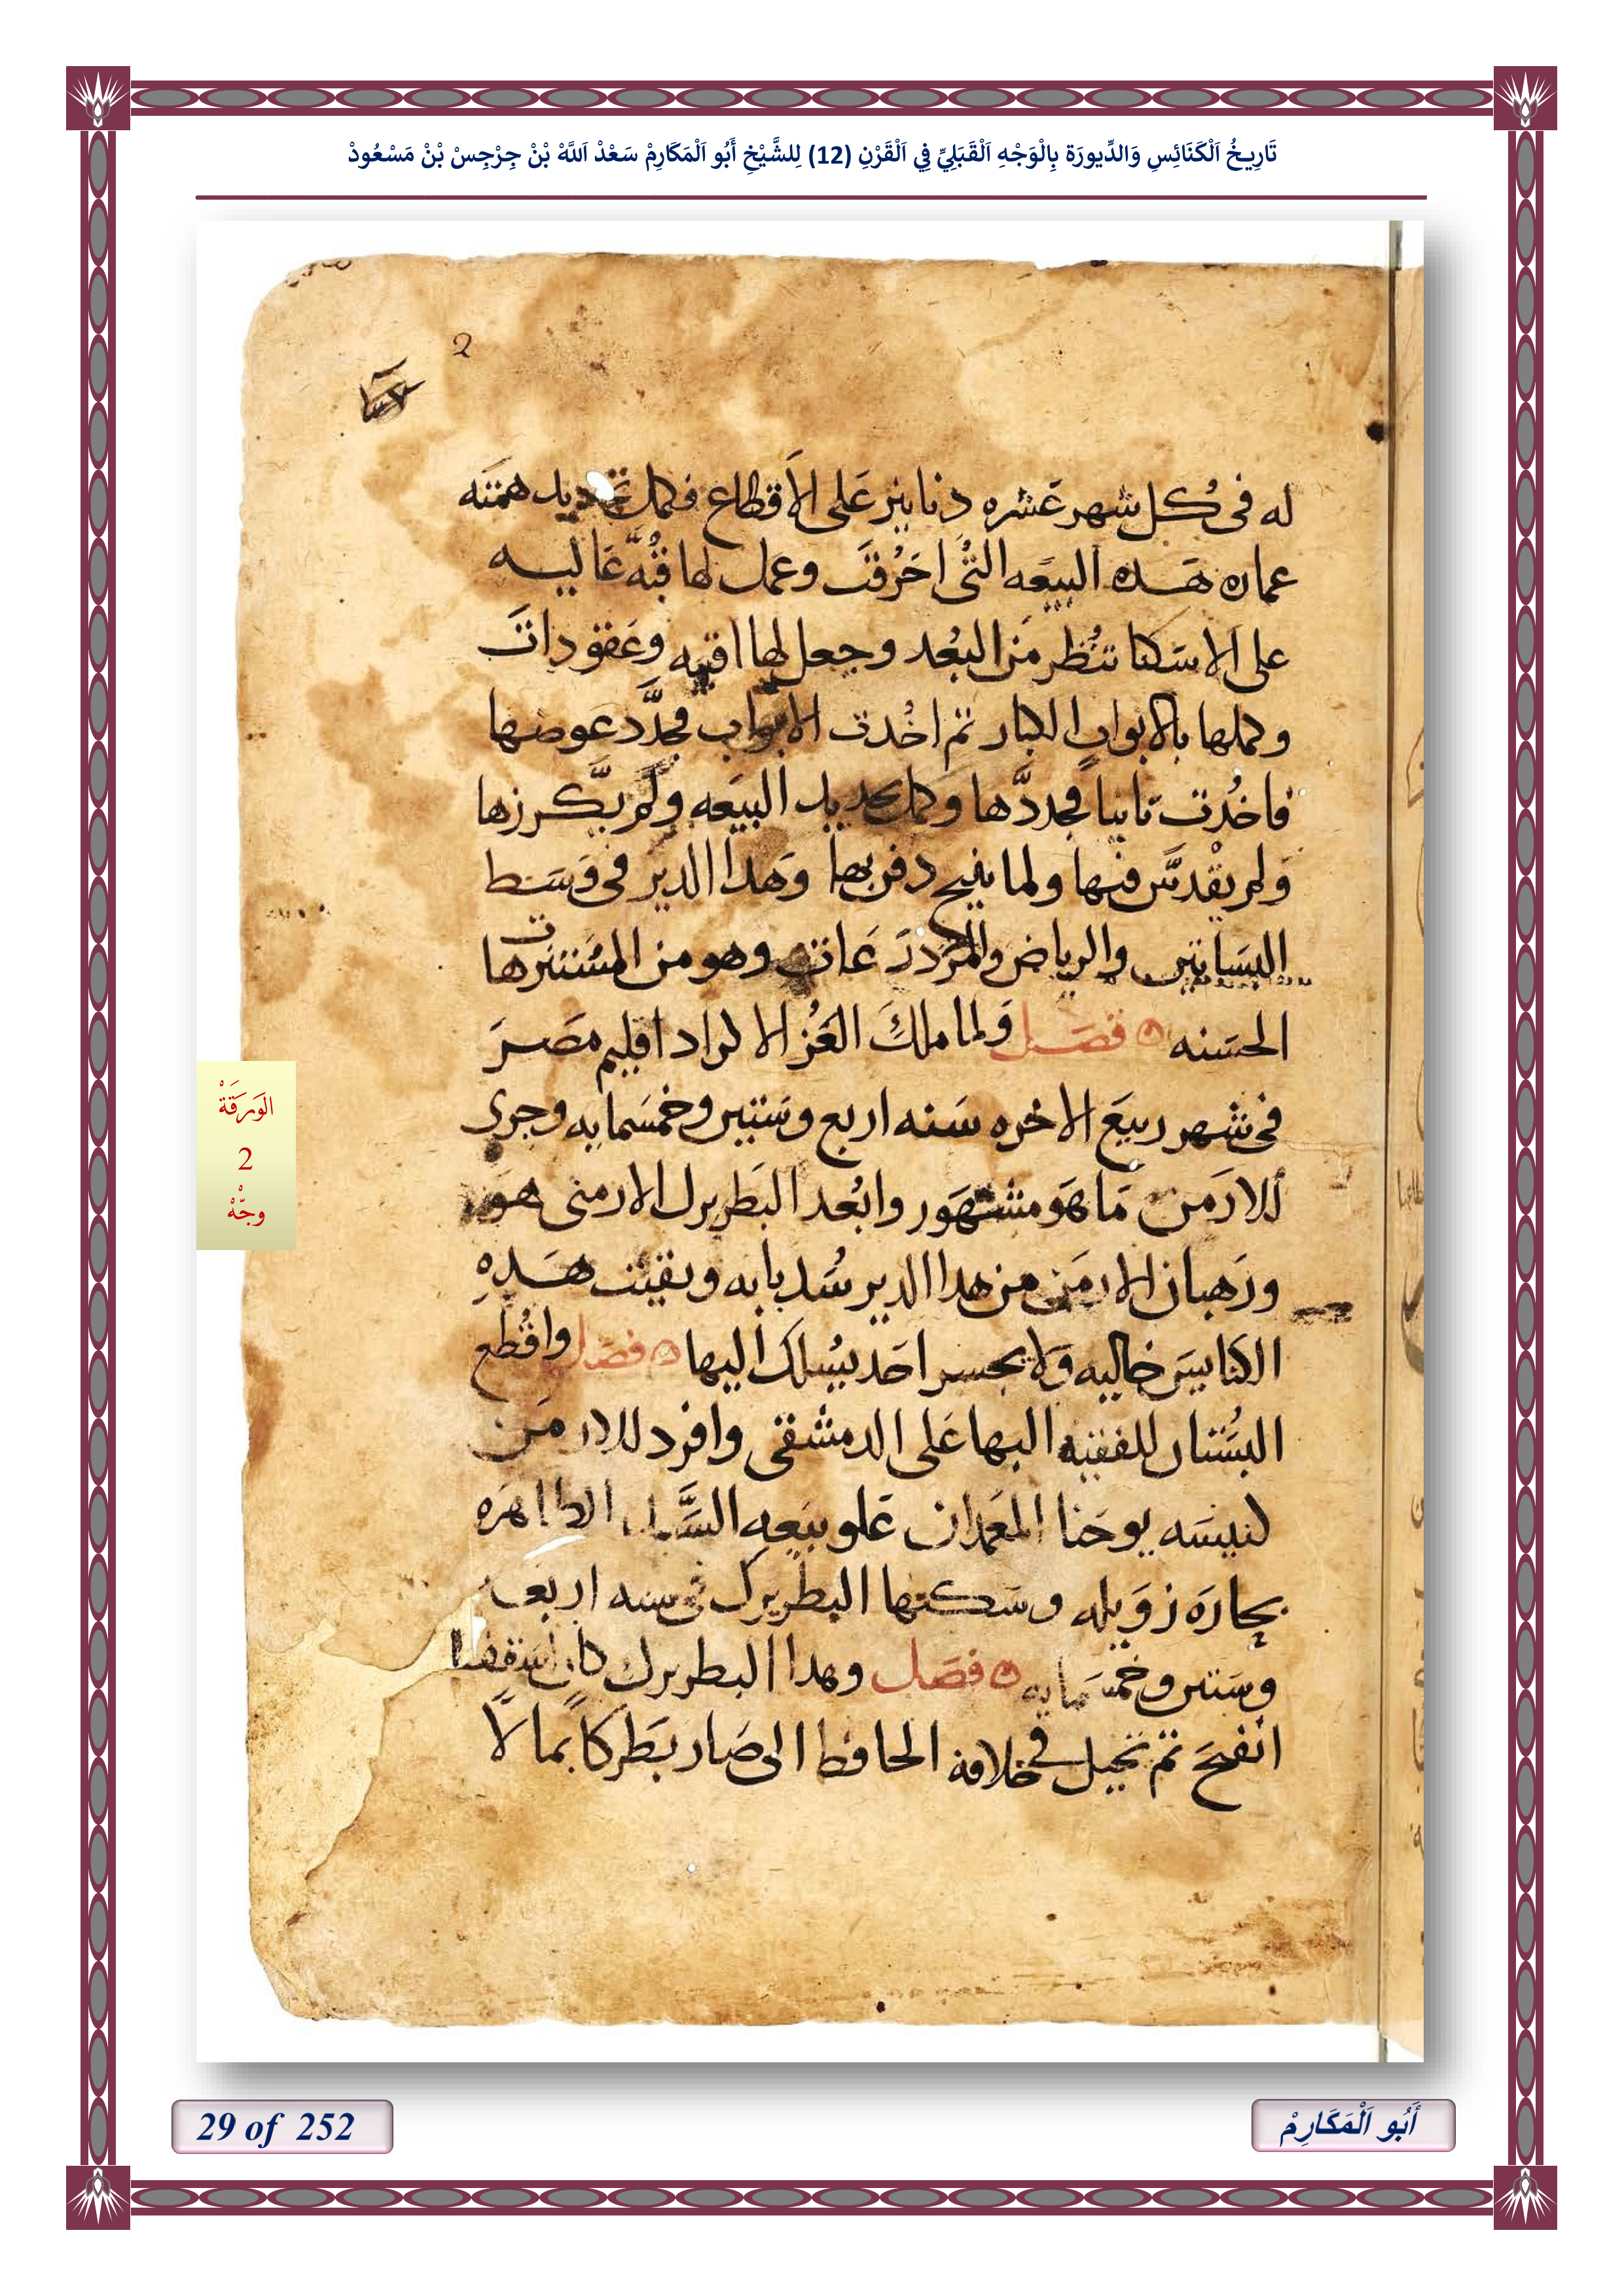 تَارِيخُ اَلْكَنَائِسِ وَالدِّيورَة بِالْوَجْهِ اَلْقَبَلِيِّ فِي اَلْقَرْنِ (12) لِلشَّيْخِ أَبُو اَلْمَكَارِمْ سَعْدْ اَللَّهْ بْنْ جِرْجِسْ بْنْ مَسْعُودْ
2
له فى كل شهر عشره دنانير على الاقطاع فكمل تجديد همته
عماره هده البيعه التى احرقت وعمل لها قبه عاليه
على الاسكنا تنظر من البعد وجعل لها اقبيه وعقودات
وكملها بالابواب الكبار تم اخدت الابواب فجدد عوضها
فاخدت تانيا فجددها وكمل تجديد البيعه ولم يكرزها
ولم يقدس فيها ولما تنيح دفن بها وهدا الدير فى وسط
البساتين والرياض والمزدرعات وهو من المستنزهات
الحسنه فصل ولما ملك الغز الاكراد اقليم مصر
فى شهر ربيع الاخره سنه اربع وستين وخمسمايه وجرى
للارمن ما هو مشهور وابعد البطريرك الارمنى هو
ورهبان الارمن من هدا الدير سد بابه وبقيت هده
الكنايس خاليه ولا يجسر احد يسلك اليها فصل واقطع
البستان للفقيه البها على الدمشقى وافرد للارمن
كنيسه يوحنا المعمدان علو بيعه السيده الطاهره
بحاره زويله وسكنها البطريرك فى سنه اربعه
وستين وخمسمايه فصل وهدا البطريرك كان اسقفا
اتفيح تم تحيل فى خلافة الحافظ الى صار بطركا بمالا
الْوَرَقَةْ
2
وجْهْ
29 of 252
أَبُو اَلْمَكَارِمْ